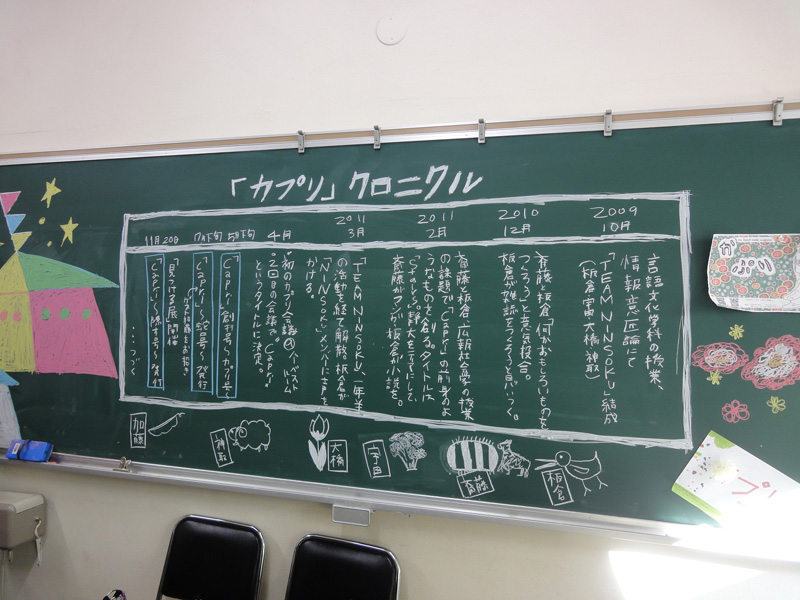 「カプリ」クロニクル
2009
10月
言語文化学科の授業、
情報意匠論にて
「TEAM NINSOKU」結成
(板倉、宇田、大橋、神取)
2010
12月
斎藤、板倉「何かおもしろいものを
つくろう」と意気投合。
板倉が雑誌をつくろうと言いつく。
2011
2月
斎藤、板倉、広報社会学の授業
の課題で「Capri」の前身のよ
うなものを創る。タイトルは
斎藤がマンガ、板倉が小説を。
2011
3月
「TEAM NINSOKU」一年半
の活動を経て解散、板倉が
「NINSOKU」メンバーに声を
かける。
4月
初のカプリ会議
2回目の会議で「Capri」
というタイトルに決定。
5月下旬
「Capri」創刊号〜カプリ号〜
7月下旬
「Capri」〜蛇号〜発行
ゲスト加藤をお招き。
11月20日
「見つける展」開催
…つづく
加藤
神取
大橋
宇田
斎藤
板倉
かぷり